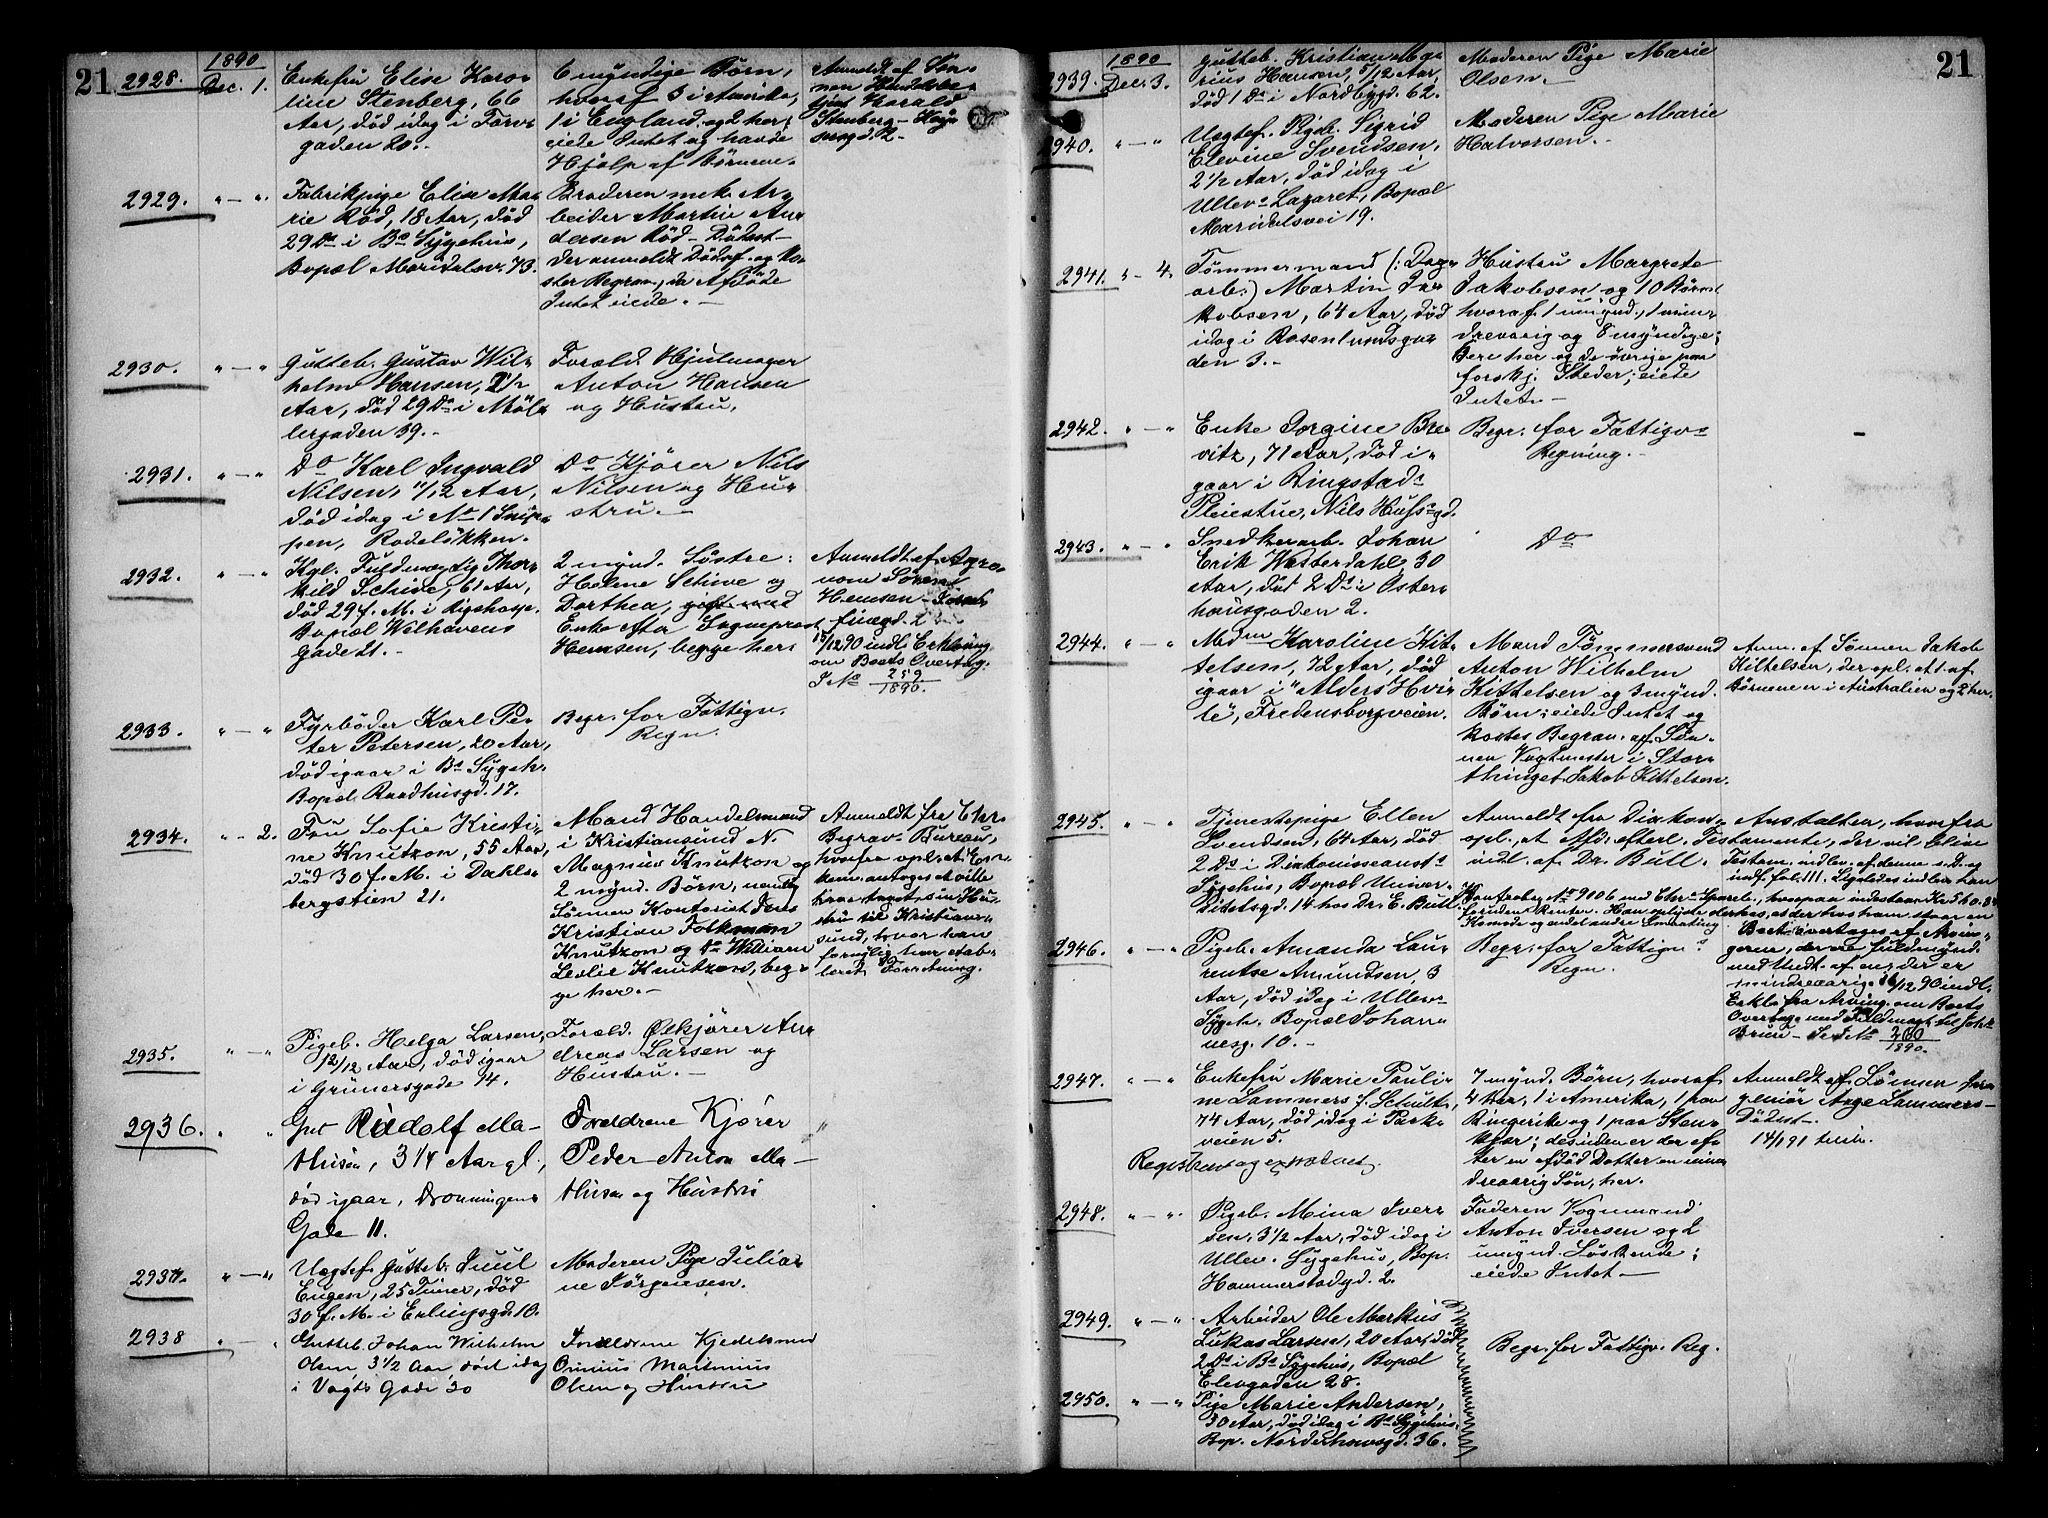 21
1890
2928. Dec. 1. Enkefru Elise Karo-
line Stenberg, 66
Aar, død idag i Torv-
gaden 20.
6 myndige Børn,
hvoraf 3 i Amerika,
1 i England og 2 her;
eiede Intet og havde
Hjælp af Børnene.
Anmeldt af Søn-
nen Handelsbe-
tjent Harald
Stenberg
2929. " — " Fabrikpige Elise Ma-
rie Rød, 18 Aar, død
29 Ds. i Bs Sygehus,
Bopæl Maridalsv. 73.
Broderen mek. Ar-
beider Martin An-
dersen Rød – Dødsat-
der anmeldt Dødsf. og ko-
ster Begrav., da Afdøde
Intet eiede. —
2930. " — " Gutteb. Gustav Wil-
helm Hansen, 2 1/2
Aar, død 29 Ds. i Møl-
lergaden 39. –
Foræld. Hjulmager
Anton Hansen
og Hustru.
2931. " — " Do Karl Ingvald
Nilsen, 11/12 Aar,
død idag i No 1 Snip-
pen, Rodeløkken.
Do Kjører Nils
Nilsen og Hu-
stru. –
2932. " — " Kgl. Fuldmægtig Thor-
kild Schive, 61 Aar,
død 29 f. M. i Rigshosp.
Bopæl Welhavens
Gade 21. –
2 mynd. Søstre:
Helene Schive og
Dorthea,
Enke efter Sogneprest
Hemsen, begge her.
Anmeldt af Agro-
nom Sørens
Hemsen
15/12 90 indl. Erklæring
om Boets Overtag.
J No 259/1890.
2933. " — " Fyrbøder Karl Pe-
ter Petersen, 20 Aar,
død igaar i Bs Sygeh.
Bopæl Raadhusgd. 17.
Begr. for Fattigv.
Regn.
2934. " – 2. Fru Sofie Kristi-
ne Knutzon, 55 Aar,
død 30 f. M. i Dahls-
bergstien 21.
Mand Handelsmand
i Kristiansund N.
Magnus Knutzon og
2 mynd. Børn, nemlig
Sønnen Kontorist Jens
Kristian Folkman
Knutzon og Do William
Leslie Knutzon, beg-
ge her. –
Anmeldt fra Chr.
Begrav. Bureau,
hvorfra opl. at En-
kem. antages at ville
have taget sin Hu-
stru til Kristian-
sund, hvor han
forøvrig har etab-
leret Forretning.
2935. " — " Pigeb. Helga Larsen,
12/12 Aar, død igaar
i Grünersgade 14.
Foræld. Ølkjører An-
dreas Larsen og
Hustru. –
2936. " " Gut Rudolf Ma-
thisen, 3 1/4 Aar gl.,
død igaar, Dronningens
Gade 11.
Forældrene Kjører
Peder Anton Ma-
thisen og Hustru
2937. " — " Uegtef. Gutteb. Juul
Eugen, 25 Timer, død
30 f. M. i Erlingsgd. 10.
Moderen Pige Julia-
ne Jørgensen.
2938 " — " Gutteb. Johan Wilhelm
Olsen 3 1/2 Aar død idag
i Vogts Gade 30
Forældrene Kjedelsmed
Orinius Maximius
Olsen og Hustru
21
1890
2939. Dec. 3. Gutteb. Kristian Ma-
rius Hansen, 5/12 Aar,
død 1 Ds. i Nordbygd. 62.
Moderen Pige Marie
Olsen. –
2940. " — " Uegtef. Pigeb. Sigrid
Elevine Svendsen,
2 1/2 Aar, død idag i
Ullevs Lazaret, Bopæl
Maridalsvei 19.
Moderen Pige Marie
Halvorsen. –
2941. " – 4. Tømmermand (: Dag-
arb.) Martin Ja-
kobsen, 64 Aar, død
idag i Rosenlundsga-
den 3. –
Hustru Margrete
Jakobsen og 10 Børn,
hvoraf 1 umynd., 1 min-
dreaarig og 8 myndige;
flere her og de øvrige paa
forskj. Steder; eiede
Intet. –
2942. " — " Enke Jorgine Bre-
vitz, 71 Aar, død i-
gaar i Ringstads
Pleiestue, Nils Huss's gd.
Begr. for Fattigv's
Regning. –
2943. " — " Snedkerarb. Johan
Erik Westerdahl, 30
Aar, død 2 Ds. i Oster-
hausgaden 2.
Do
2944. " — " Mdm Karoline Kit-
telsen, 72 Aar, død
igaar i "Alders Hvi-
le", Fredensborgveien.
Mand Tømmersvend
Anton Wilhelm
Kittelsen og 3 mynd.
Børn; eiede Intet og
kostes Begrav. af Søn-
nen Vagtmester i Stor-
thinget Jakob Kittelsen.
Anm. af Sønnen Jakob
Kittelsen, der opl. at 1 af
Børnene er i Australien og 2 her.
2945. " — " Tjenestepige Ellen
Svendsen, 64 Aar, død
2 Ds. i Diakonisseanst.
Sygehus, Bopæl Univer-
sitetsgd. 14 hos Dr. E. Bull.
Anmeldt fra Diakon. Anstalten, hvorfra
opl. at Afd. efterl. Testamente, der vil blive
indl. af Dr. Bull. Testam. indlev. af denne s. D. og
indf. fol. 111. Ligeledes indlev. han
Kontrabog No 9006 med Chr.a Spareb., hvorpaa indestaar Kr. 360.84
foruden Renter. Han oplyste derhos, at der hos ham staar en
Komode og endel andre Smaating
Boet overtages af Arvin-
gerne, der ere fuldmynd.
med Undt. af en, der er
mindreaarig. 16/12 90 indl.
Erkl. fra Arving. om Boets
Overtag. med Fuldmagt til Joh.
Bruu – Se J No 260/1890.
2946. " — " Pigeb. Amanda Lau-
rentse Amundsen, 3
Aar, død idag i Ullev.
Sygeh. Bopæl Johan-
nesg. 10. –
Begr. for Fattigv.s
Regn.
2947. " — " Enkefru Marie Pauli-
ne Lammers f. Schultz,
74 Aar, død idag i Park-
veien 5.
Registreret og exviteret
7 mynd. Børn, hvoraf
4 her, 1 i Amerika, 1 paa
Ringerike og 1 paa Sten-
kjær; desuden er der ef-
ter en afdød Datter en min-
dreaarig Søn, her.
Anmeldt af Sønnen In-
geniør Aage Lammers –
Dødsat. –
14/1 91
2948. " — " Pigeb. Mina Iver-
sen, 3 1/2 Aar, død idag i
Ullev. Sygehus, Bop.
Hammerstadgd. 2.
Faderen Vognmand
Anton Iversen og 2
umynd. Søskende;
eiede Intet –
2949. " — " Arbeider Ole Markus
Lukas Larsen, 20 Aar, død
2 Ds. i Bs Sygehus, Bopæl
Elvegaden 28.
Begr. for Fattigv. Reg.
2950. " — " Pige Marie Andersen,
30 Aar, død idag i Bs Sygehus,
Bop. Norderhovsgd. 36.